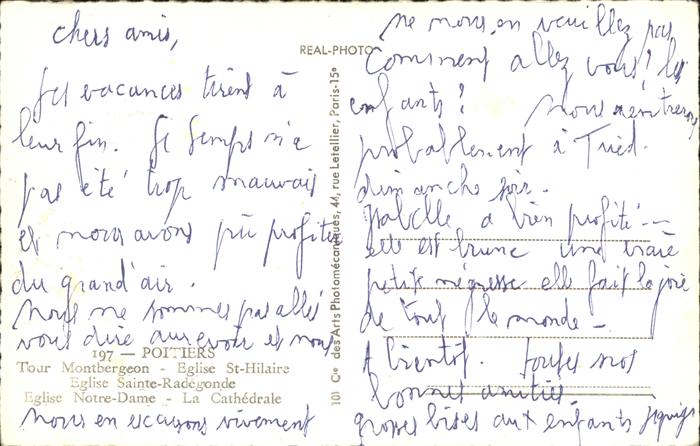 chers amis,
Les vacances tirent à
leur fin. Le temps n'a
pas été trop mauvais
et nous avons pu profiter
du grand air.
nous ne sommes pas allés
vous dire au revoir et nous
197 — POITIERS
Tour Montbergeon - Eglise St-Hilaire
Eglise Sainte-Radégonde
Eglise Notre-Dame - La Cathédrale
nous en excusons vivement
REAL-PHOTO
101 Cie des Arts Photomécaniques, 44, rue Letellier, Paris-15e
ne nous en veuillez pas
Comment allez vous? les
enfants? Nous rentrerons
probablement à
dimanche soir.
Isabelle a bien profité --
elle est brune une vraie
petite négresse elle fait la joie
de tout le monde -
A bientôt. toutes nos
bonnes amitiés
grosses bises aux enfants